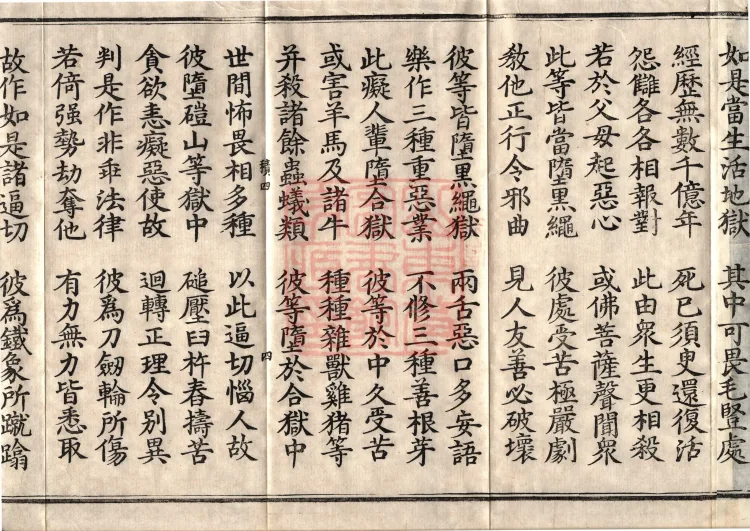 如是當生活地獄 其中可畏毛豎處
經歷無數千億年 死已須臾還復活
怨讎各各相報對 此由衆生更相殺
若於父母起惡心 或佛菩薩聲聞衆
此等皆當墮黑繩 彼處受苦極嚴劇
教他正行令邪曲 見人友善必破壞
彼等皆墮黑繩獄 兩舌惡口多妄語
樂作三種重惡業 不修三種善根芽
此癡人輩墮合獄 彼等於中久受苦
或害羊馬及諸牛 種種雜獸雞猪等
并殺諸餘蟲蟻類 彼等墮於合獄中
積四 四
世間怖畏相多種 以此逼切惱人故
彼墮磑山等獄中 磓壓臼杵舂擣苦
貪欲恚癡惡使故 迴轉正理令別異
判是作非乖法律 彼爲刀劒輪所傷
若倚强勢劫奪他 有力無力皆悉取
故作如是諸逼切 彼爲鐵象所蹴蹋